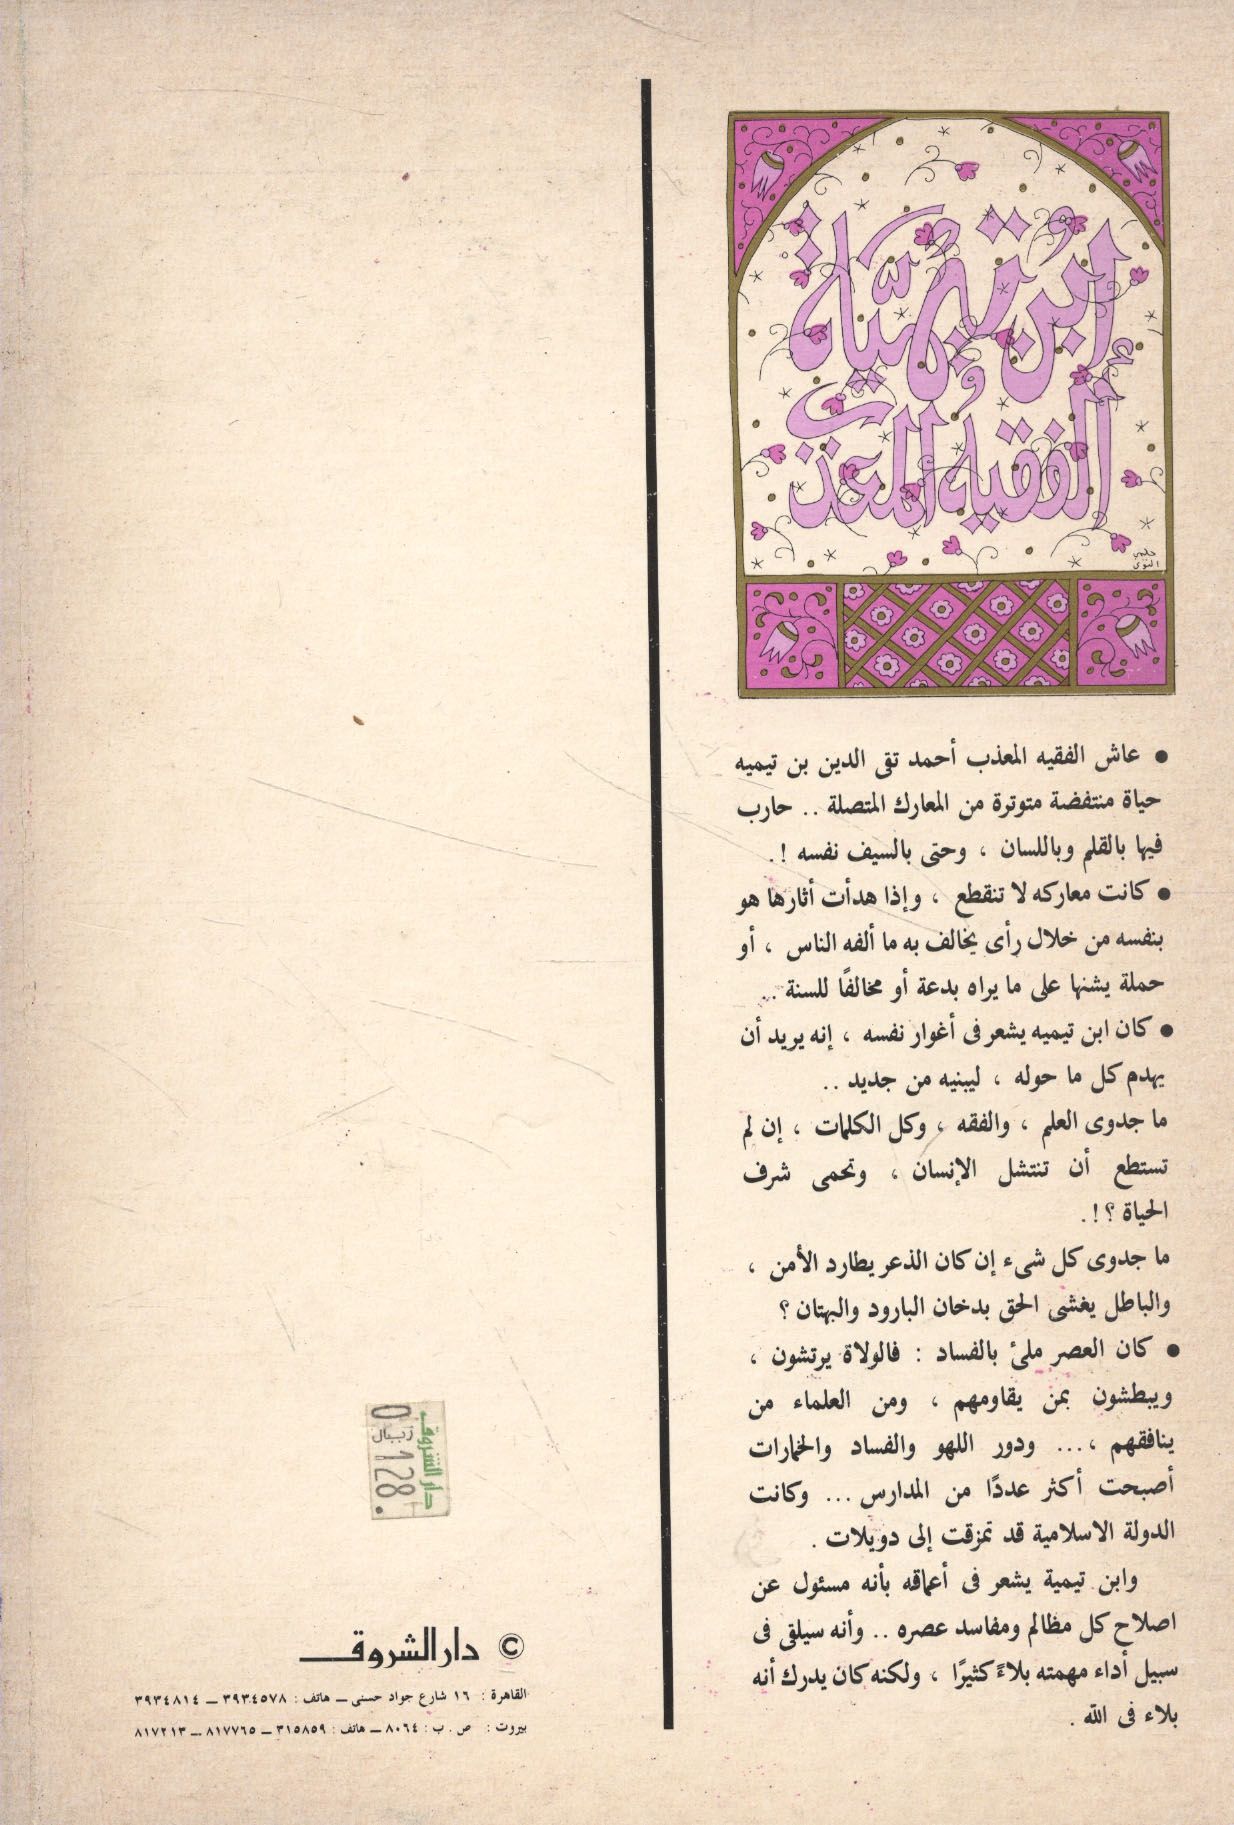 ابن تيمية
الفقيه المعذب
حلمي
التوني
● عاش الفقيه المعذب أحمد تقى الدين بن تيميه
حياة منتفضة متوترة من المعارك المتصلة .. حارب
فيها بالقلم وباللسان ، وحتى بالسيف نفسه !.
● كانت معاركه لا تنقطع ، وإذا هدأت أثارها هو
بنفسه من خلال رأى يخالف به ما ألفه الناس ، أو
حملة يشنها على ما يراه بدعة أو مخالفًا للسنة ..
● كان ابن تيميه يشعر فى أغوار نفسه ، إنه يريد أن
يهدم كل ما حوله ، ليبنيه من جديد ..
ما جدوى العلم ، والفقه ، وكل الكلمات ، إن لم
تستطع أن تنتشل الإنسان ، وتحمى شرف
الحياة ؟!.
ما جدوى كل شىء إن كان الذعر يطارد الأمن ،
والباطل يغشى الحق بدخان البارود والبهتان ؟
● كان العصر ملئ بالفساد : فالولاة يرتشون ،
ويبطشون بمن يقاومهم ، ومن العلماء من
ينافقهم ،... ودور اللهو والفساد والخمارات
أصبحت أكثر عددًا من المدارس ... وكانت
الدولة الاسلامية قد تمزقت إلى دويلات .
وابن تيمية يشعر فى أعماقه بأنه مسئول عن
اصلاح كل مظالم ومفاسد عصره .. وأنه سيلقى فى
سبيل أداء مهمته بلاءً كثيرًا ، ولكنه كان يدرك أنه
بلاء فى الله .
دار الشروق
ريال
0 128.
© دار الشروق
القاهرة : ١٦ شارع جواد حسنى ــ هاتف : ٣٩٣٤٥٧٨ ــ ٣٩٣٤٨١٤
بيروت : ص . ب : ٨٠٦٤ ــ هاتف : ٣١٥٨٥٩ ــ ٨١٧٧٦٥ ــ ٨١٧٢١٣